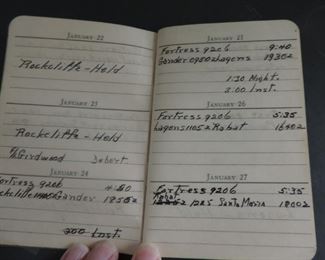 JANUARY 22
Rockcliffe - Held
JANUARY 23
Rockcliffe - Held
F/O Girdwood Debert
JANUARY 24
Fortress 9206 4:50
Rockcliffe Gander 1850Z
300 Inst.
JANUARY 25
Fortress 9206 9:40
Gander 0950Z Lagens 1930Z
1:30 Night.
3:00 Inst.
JANUARY 26
Fortress 9206 5:35
Lagens 1105Z Rabat 1640Z
JANUARY 27
Fortress 9206 5:35
Rabat 1225 Santa Maria 1800Z